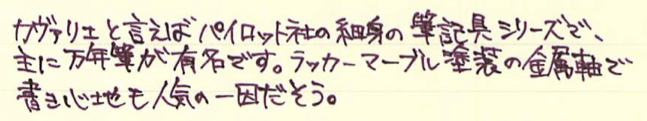 カヴァリエと言えばパイロット社の細身の筆記具シリーズで、
主に万年筆が有名です。ラッカーマーブル塗装の金属軸で
書き心地も人気の一因だそう。